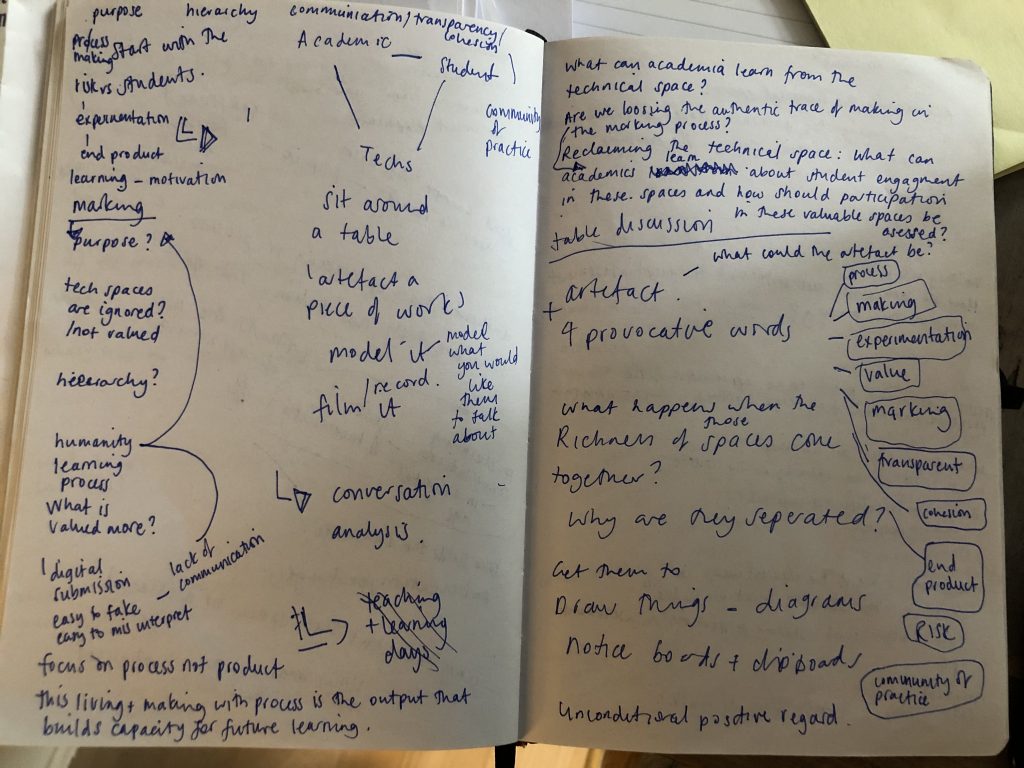 purpose hierarchy communication/transparency/
cohesion
process
making
Start with the
risk vs students.
experimentation
end product
learning - motivation
marking
purpose?
tech spaces
are ignored?
/not valued
hierarchy?
humanity
learning
process
What is
valued more?
1 digital
submission
easy to fake - lack of
communication
easy to mis interpret
focus on process not product
This living + making with process is the output that
builds capacity for future learning.
Academic - Student
Techs
community
of
practice
sit around
a table
1 artefact a
piece of work
model it
model
what
you would
like
them
to talk
about
film/record.
it
conversation
analysis.
teaching
+ learning
days
what can academia learn from the
technical space?
Are we loosing the authentic trace of making in
the marking process?
Reclaiming the technical space: what can
academics learn about student engagment
in these spaces and how should participation
in these valuable spaces be
asessed?
table discussion
what could the artefact be?
+ artefact.
4 provocative words
process
making
experimentation
value
marking
transparent
cohesion
end
product
RISK
community of
practice
What happens when the
Richness of those spaces come
together?
Why are they seperated?
Get them to
Draw things - diagrams
notice boards + clipboads
Unconditional positive regard.